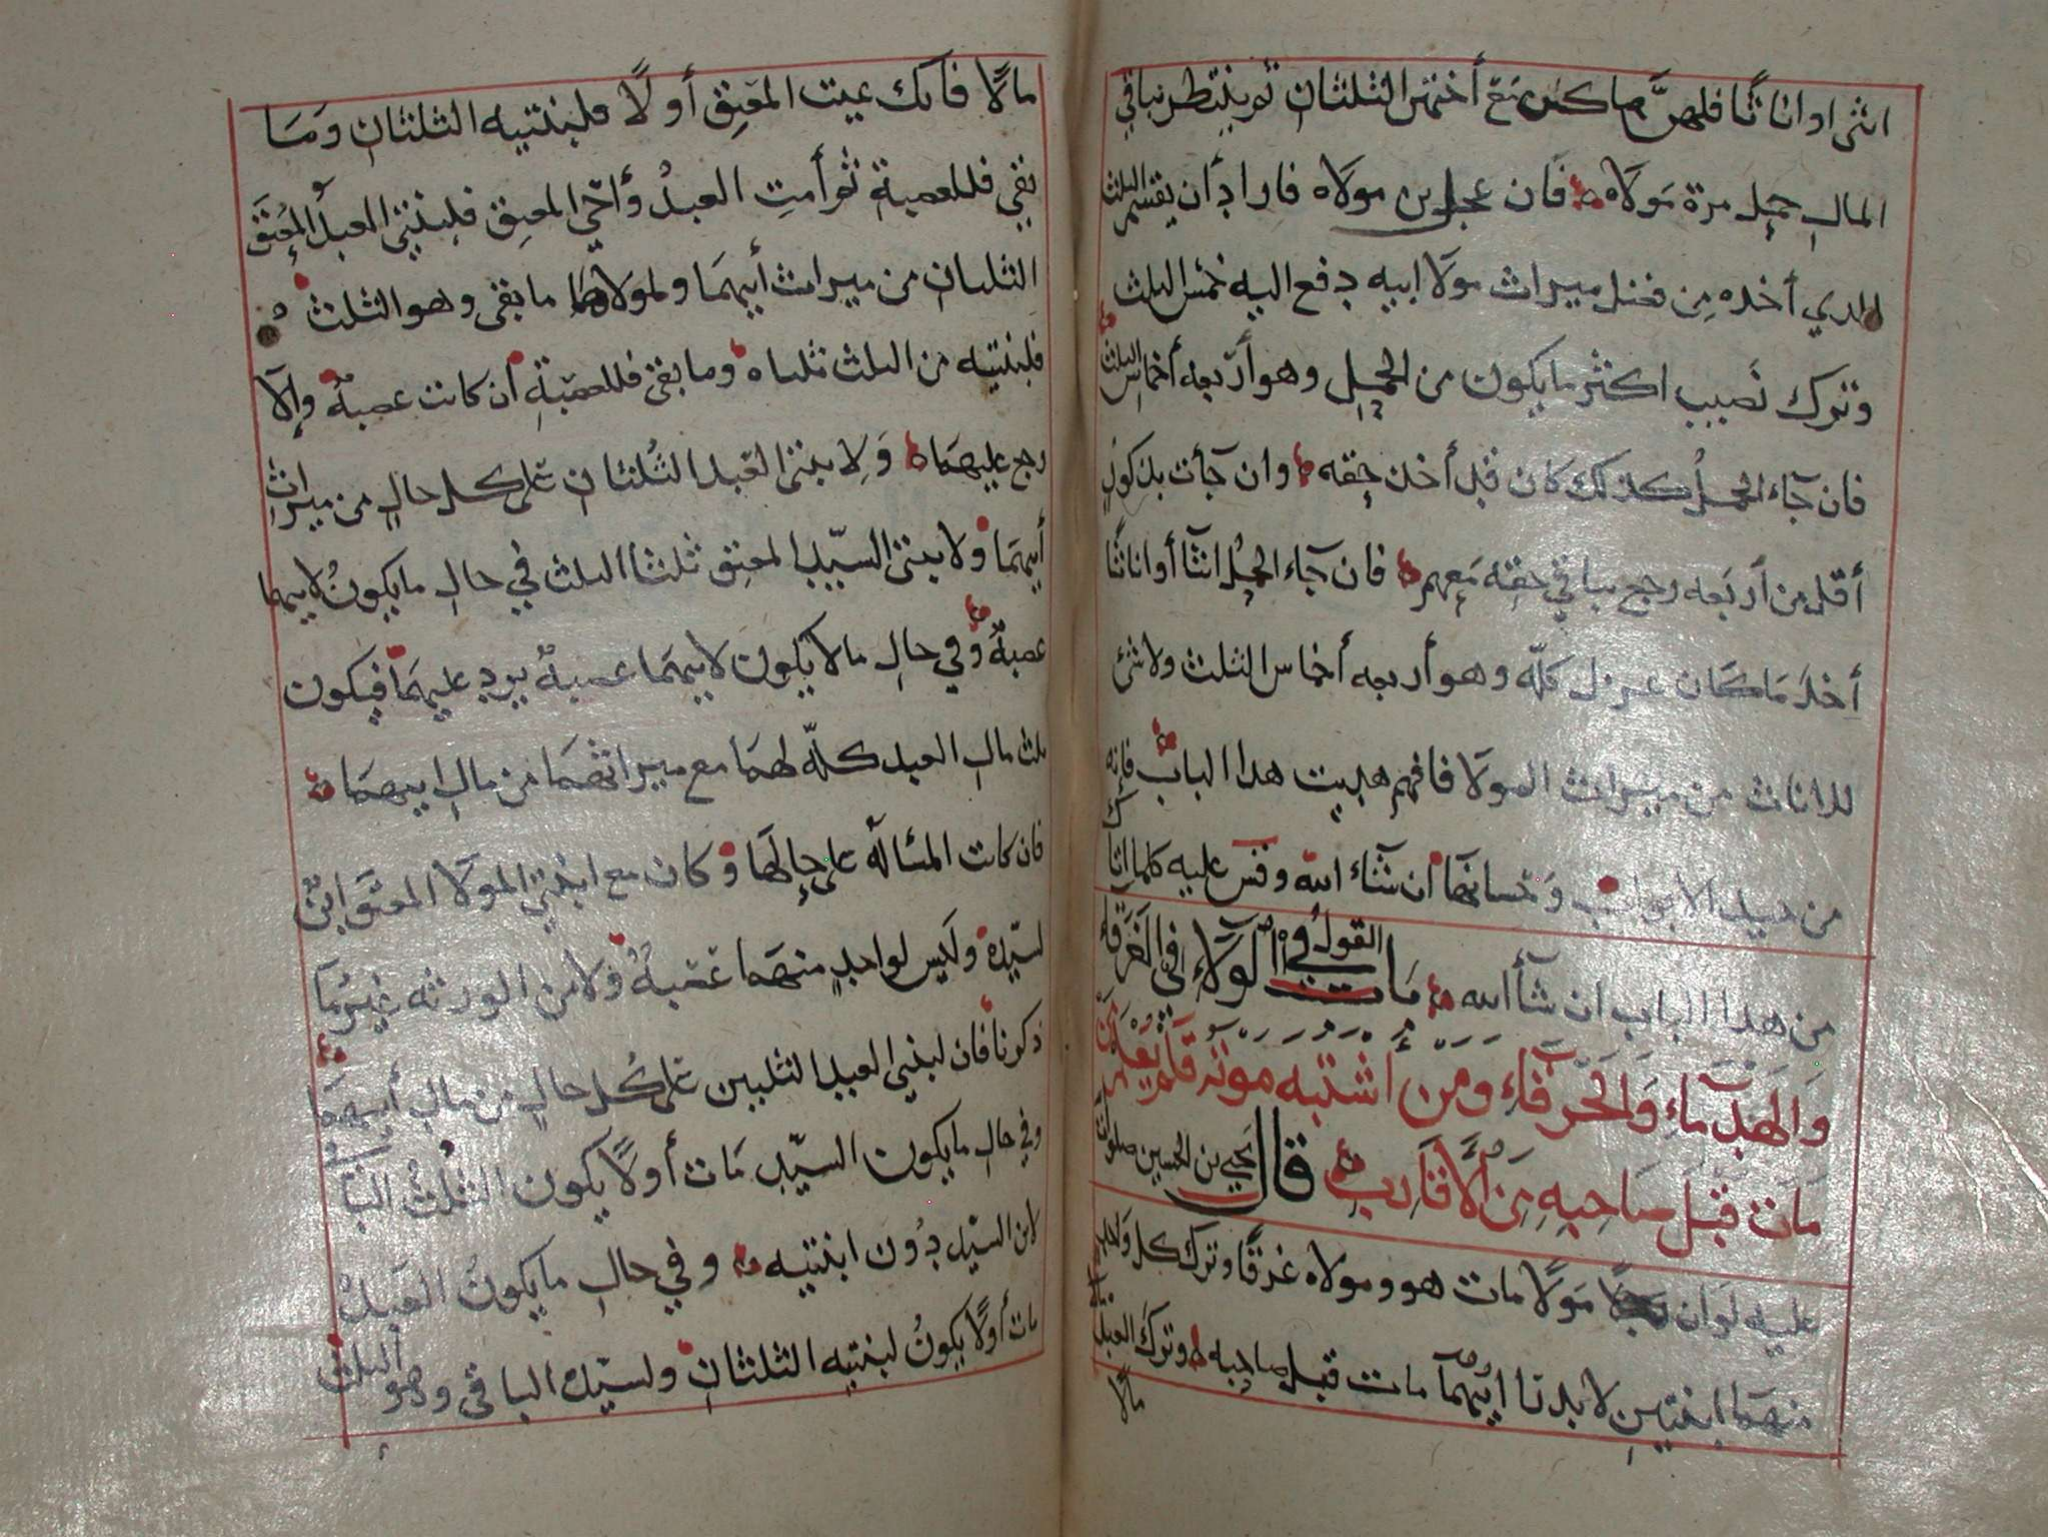 انثى او اناثا فلهن ما كن مع أختهن الثلثان ثم ينتظر بباقي
المال حمل مرة مولاه فان عجل بن مولاه فاراد أن يقسم الثلث
الذي أخذه من فضل ميراث مولا ابيه دفع اليه خمس الثلث
وترك نصيب اكثر ما يكون من الحمل وهو أربعه أخماس الثلث
فان جاء الحمل كذلك كان قبل أخذ حقه وان جأت بذكور
أقل من أربعه رجع بباقي حقه معهم فان جاء الحمل انثا أو اناثا
أخذ ما كان عزل كله وهو أربعه أخماس الثلث ولا شئ
للاناث من ميراث المولا فافهم هديت هذا الباب فإنه
من جيد الأبواب وحسانها ان شاء الله وقس عليه كلما اتاك
من هذا الباب ان شأ الله مات القول في الولاء في الغرقا
والهدماء والحرقاء ومن اشتبه موته فلم يعلم من
مات قبل صاحبه من الأقارب قال يحيى بن الحسين صلوات
عليه لو ان مولا مات هو ومولاه غرقا وترك كل واحد
منهما ابنتين لا يدرا ايهما مات قبل صاحبه وترك العبد
مالا
مالا فانك تميت المعتق أولا فلبنتيه الثلثان وما
بقي فللعصبة ثم أمت العبد وأحي المعتق فلبنتي العبد المعتق
الثلثان من ميراث أبيهما ولمولاهما ما بقى وهو الثلث
فلبنتيه من الثلث ثلثاه وما بقى فللعصبة ان كانت عصبة وإلا
رجع عليهما ولابنتى العبد الثلثان على كل حال من ميراث
أبيهما ولابنتى السيد المعتق ثلثا الثلث في حال ما يكون لابيهما
عصبة وفي حال ما لا يكون لابيهما عصبة يرد عليهما فيكون
ثلث مال العبد كله لهما مع ميراثهما من مال ابيهما
فان كانت المسالة على حالها وكان مع ابنتي المولا المعتق ابن
لسيده وليس لواحد منهما عصبة ولا من الورثه غير ما
ذكرنا فان لبنتي العبد الثلثين على كل حال من مال أبيهما
وفي حال ما يكون السيد مات أولا يكون الثلث الباقي
لابن السيد دون ابنتيه وفي حال ما يكون العبد
مات أولا يكون لبنتيه الثلثان ولسيده الباقي وهو الثلث